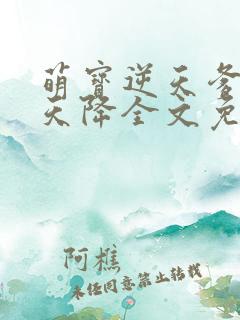 萌宝逆天爹
天降全文免
阿樵
未经同意禁止转载